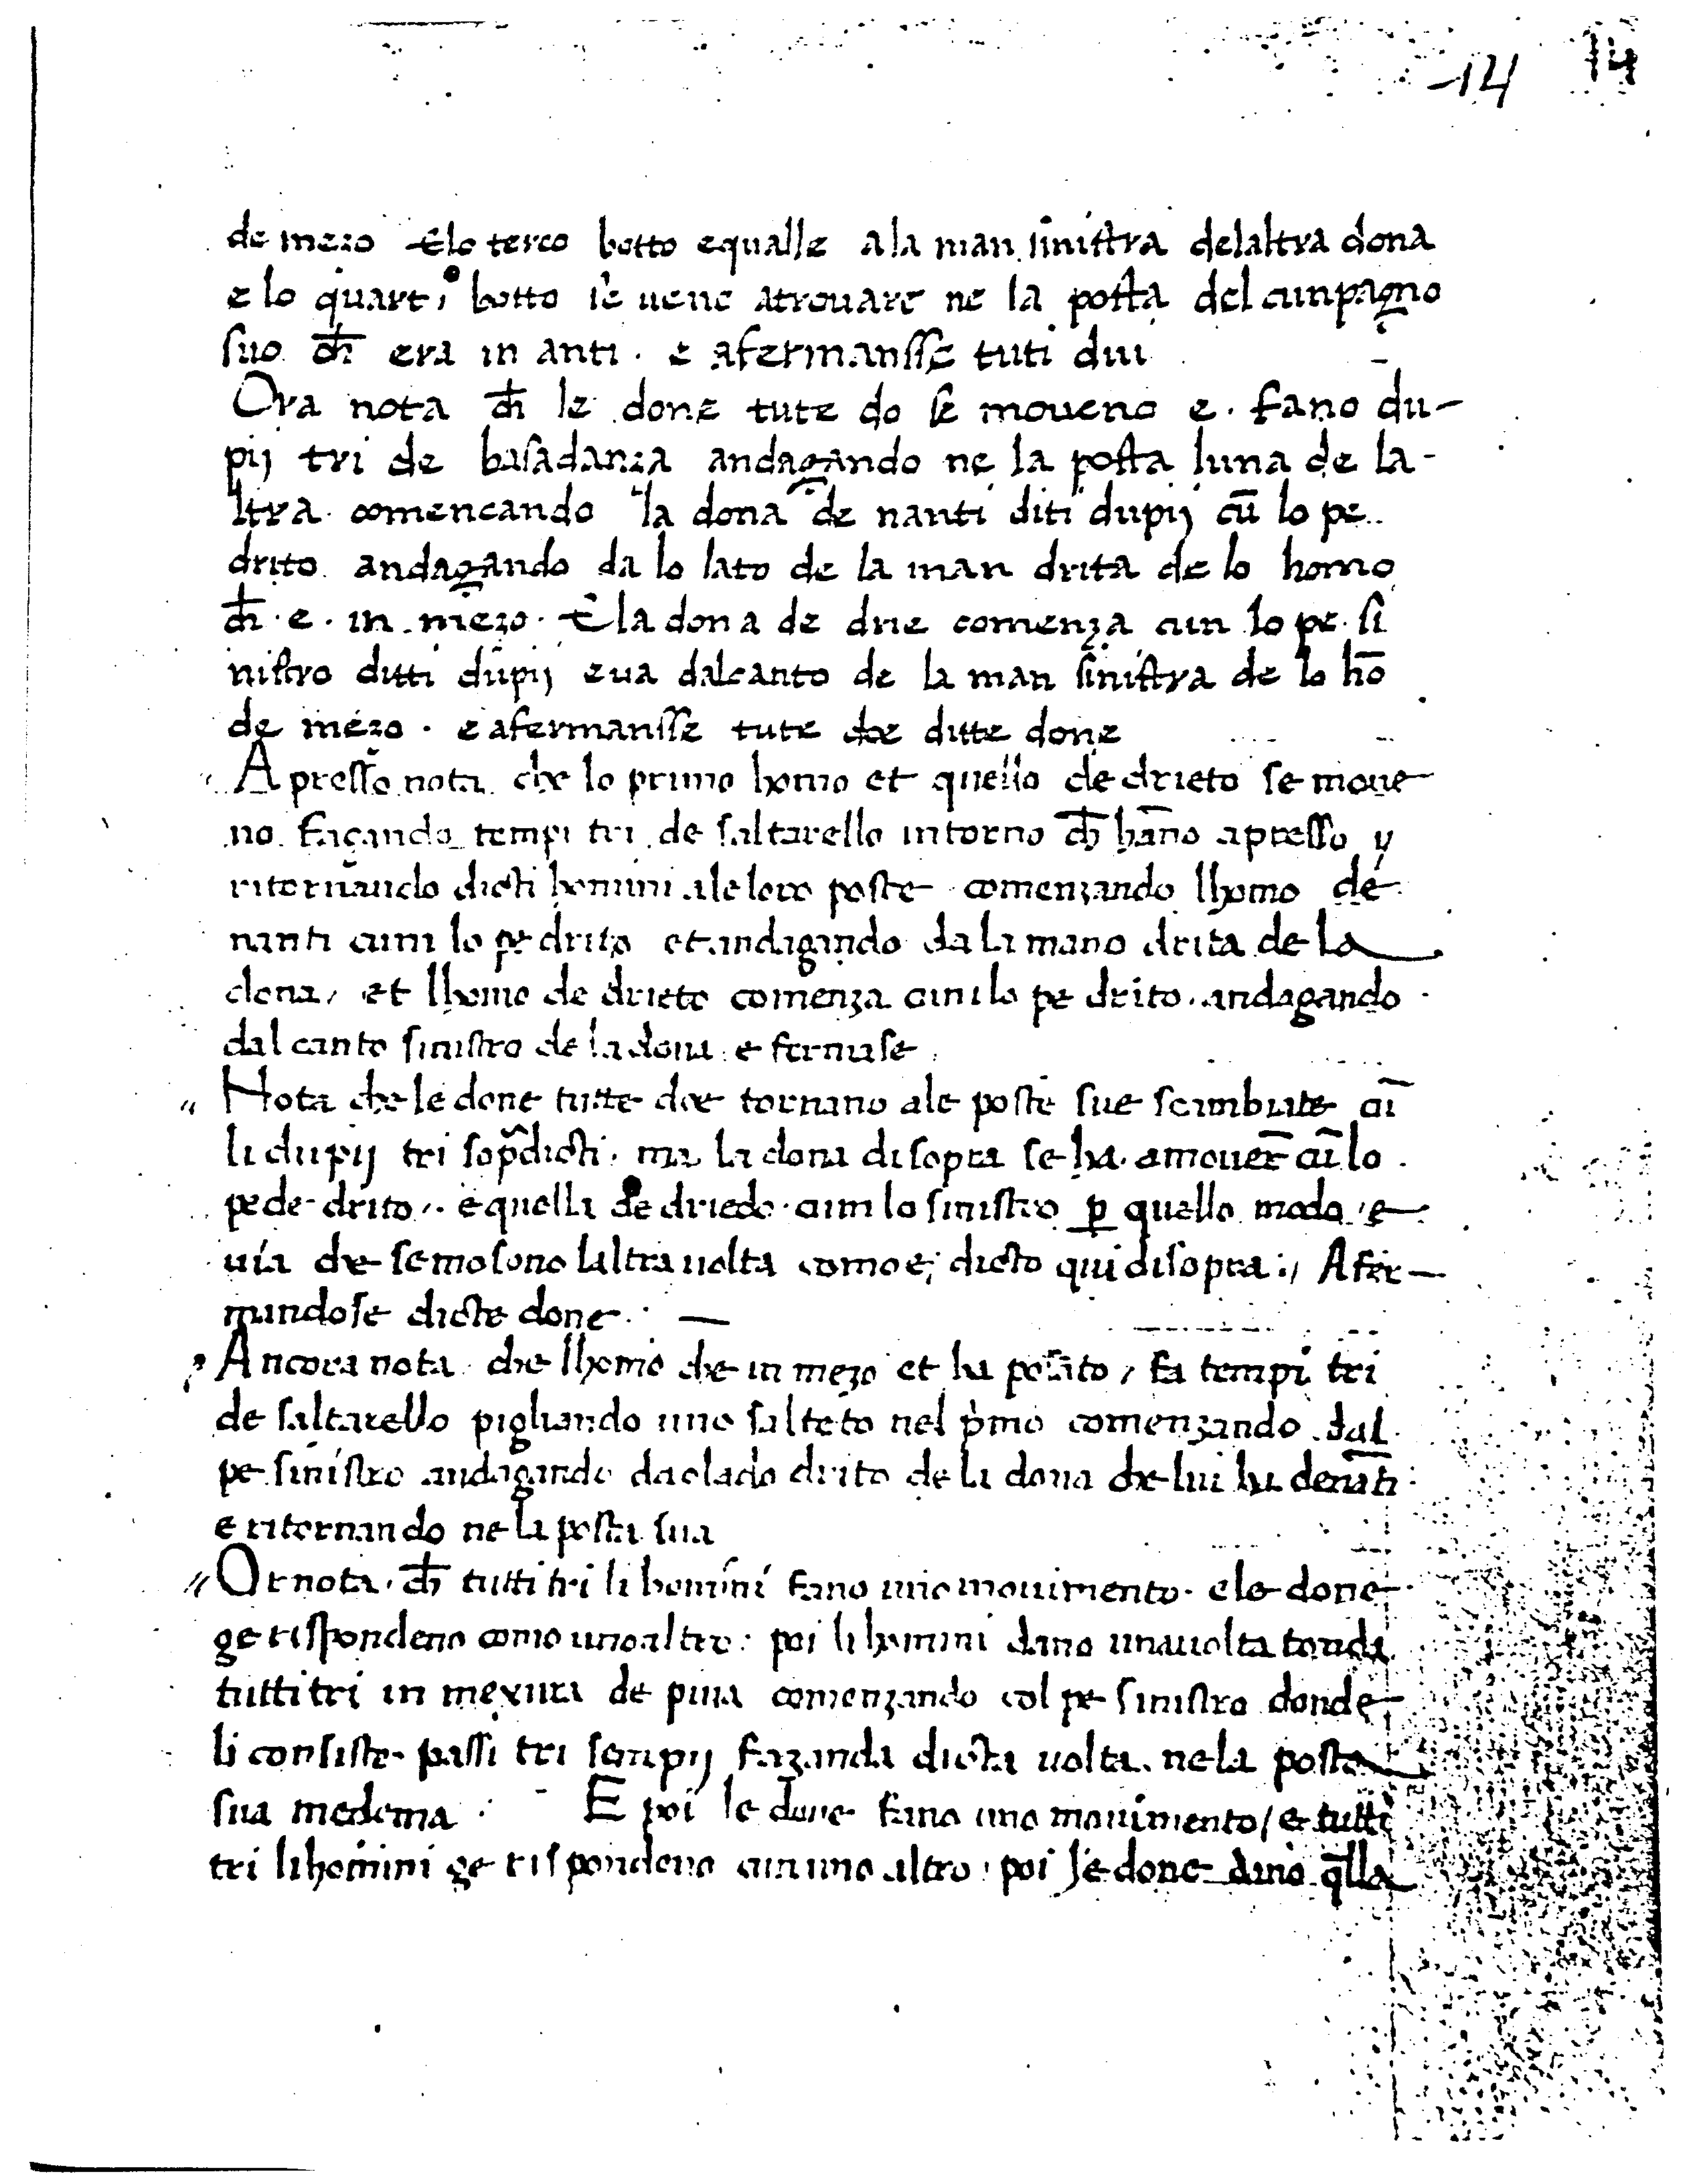 14 14
de mezo E lo terco botto equalle a la man sinistra delaltra dona
e lo quarto botto se uene atrouare ne la posta del cunpagno
suo ch̄ era in anti · e afermansse tuti dui
Ora nota ch̄ le done tute do se moueno e · fano du-
pij tri de basadanza andagando ne la posta luna de la-
ltra comencando la dona de nanti diti dupij cū lo pe
drito andagando da lo lato de la man drita de lo homo
ch̄ · e · in mezo · E la dona de drie comenza cun lo pe si
nistro ditti dupij e ua dal canto de la man sinistra de lo hō
de mezo · e afermansse tute doe ditte done
" Apresso nota che lo primo homo et quello de drieto se moue
no façando tempi tri de saltarello intorno ch̄ hāno apresso y
ritornando dicti homini ale loro poste comenzando lhomo de
nanti cum lo pe drito et andagando da la mano drita de la
dona / et lhomo de drieto comenza cum lo pe drito · andagando
dal canto sinistro de la dona e fermase
" Nota che le done tutte doe tornano ale poste sue scambiate cū
li dupij tri sop̄dicti · ma la dona di sopra se ha · a mouer̄ cū lo
pede drito · e quella de driedo · cum lo sinistro p̱ quello modo e
uia che se mosono laltra uolta como e dicto qui di sopra : / Afer-
mandose dicte done · —
" Ancora nota che lhomo che in mezo et ha posāto / fa tempi tri
de saltarello pigliando uno salteto nel p̄mo comenzando dal
pe sinistro andagando dao lado drito de la dona che lui ha denāti
e ritornando ne la posta sua
" Or nota · ch̄ tutti tri li homini fano uno mouimento · e le done
ge rispondeno como uno altro : poi li homini dano una uolta tonda
tutti tri in mexura de piua comenzando col pe sinistro donde
li consiste · passi tri sempij fazando dicta uolta · ne la posta
sua medema · E poi le done fano uno mouimento / e tutti
tri li homini ge rispondeno cun uno altro · poi le done dano q̄lla